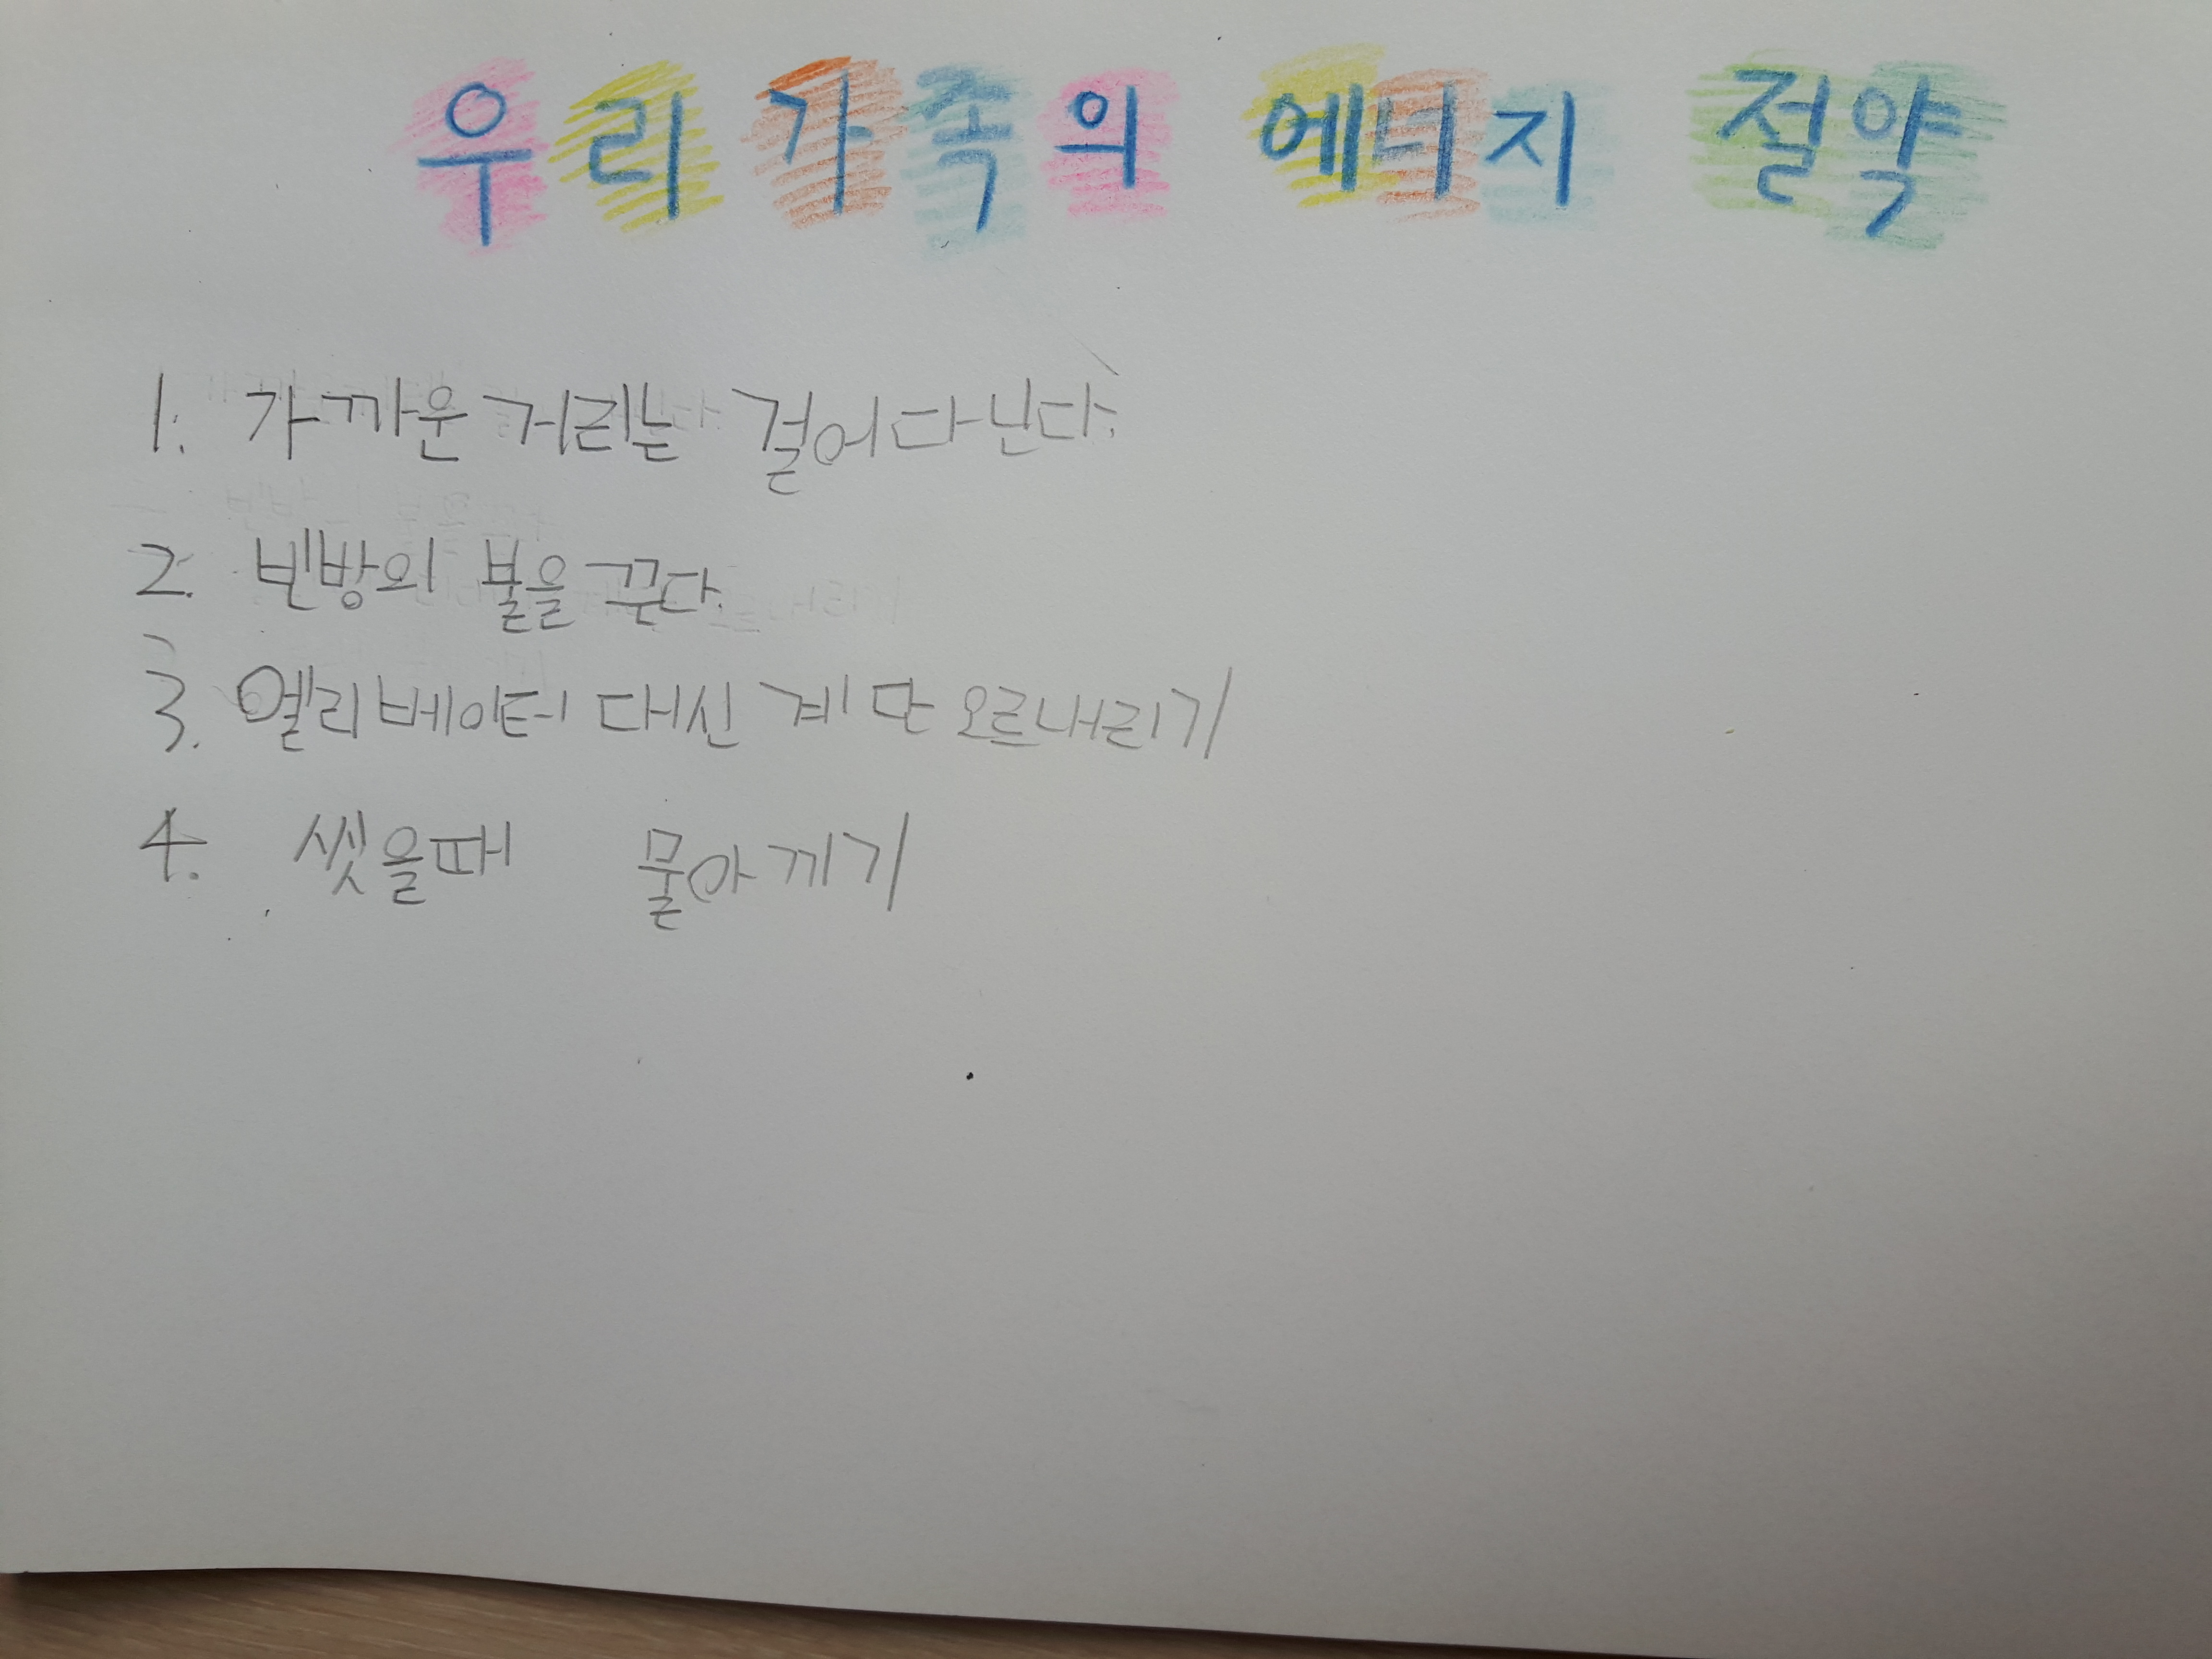 우리 가족의 에너지 절약
1. 가까운 거리는 걸어다닌다.
2. 빈방의 불을 끈다.
3. 엘리베이터 대신 계단 오르내리기
4. 씻을때 물 아끼기